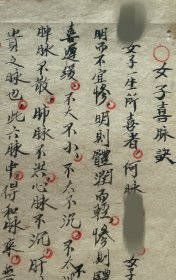 女子喜脉訣
女子一生所喜者何脉
明而不宜慘明則體潤而輕慘則體
喜遲緩不大不小不大不沉不太
脾脉不散肺脉不共心脉不沉肝
此六脉中得和脉來